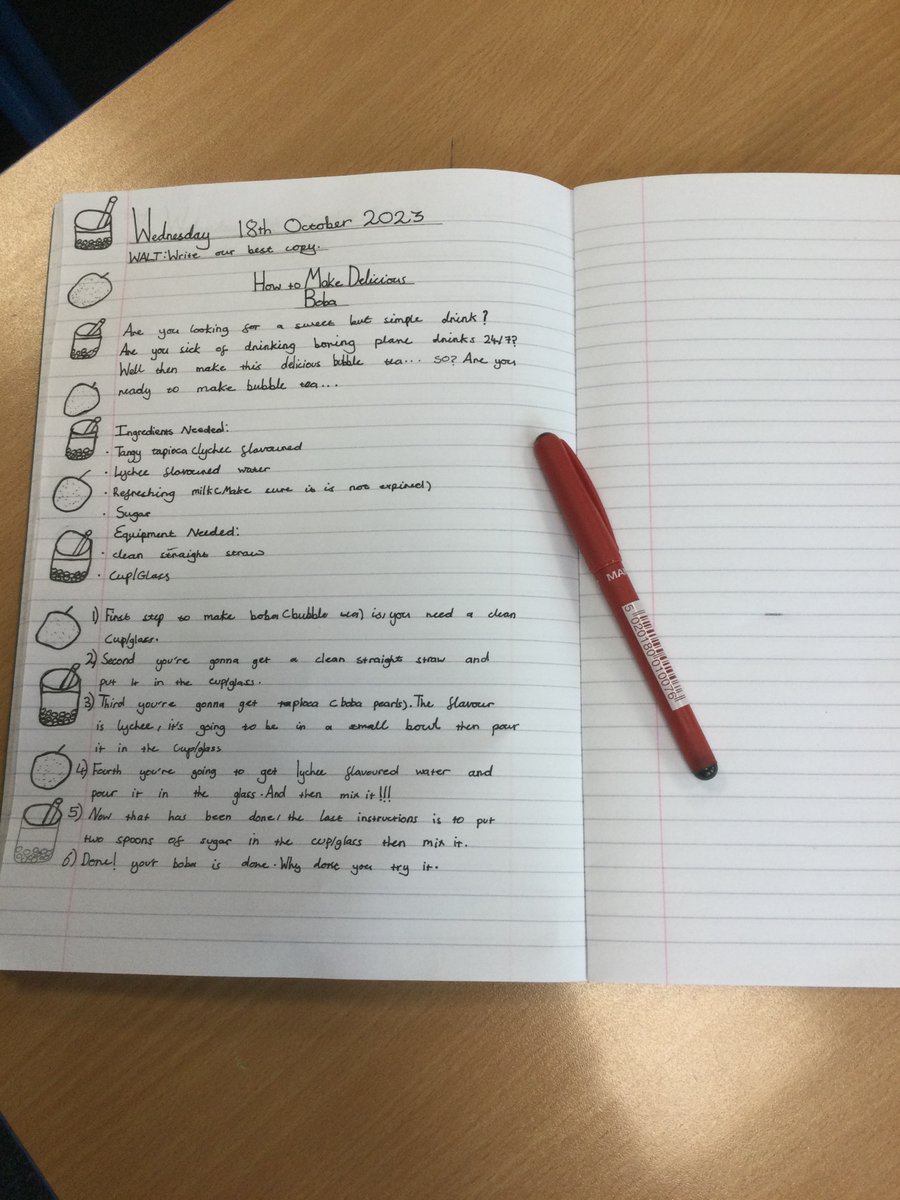 Wednesday 18th October 2023
WALT: Write our best copy.
How to Make Delicious
Boba
Are you looking for a sweet but simple drink?
Are you sick of drinking boring plane drinks 24/7?
Well then make this delicious bubble tea... so? Are you
ready to make bubble tea...
Ingredients Needed:
· Tangy tapioca (lychee flavoured
· Lychee flavoured water
· Refreshing milk (Make sure is is not expired)
· Sugar
Equipment Needed:
· clean straight straw
· Cup/Glass
1) First step to make boba (bubble tea) is, you need a clean
Cup/glass.
2) Second you're gonna get a clean straight straw and
put it in the cup/glass.
3) Third you're gonna get tapioca (boba pearls). The flavour
is lychee, it's going to be in a small bowl then pour
it in the cup/glass
4) Fourth you're going to get lychee flavoured water and
pour it in the glass. And then mix it!!!
5) Now that has been done, the last instructions is to put
two spoons of sugar in the cup/glass then mix it.
6) Done! your boba is done. Why dont you try it.
MA
5 020180 010076